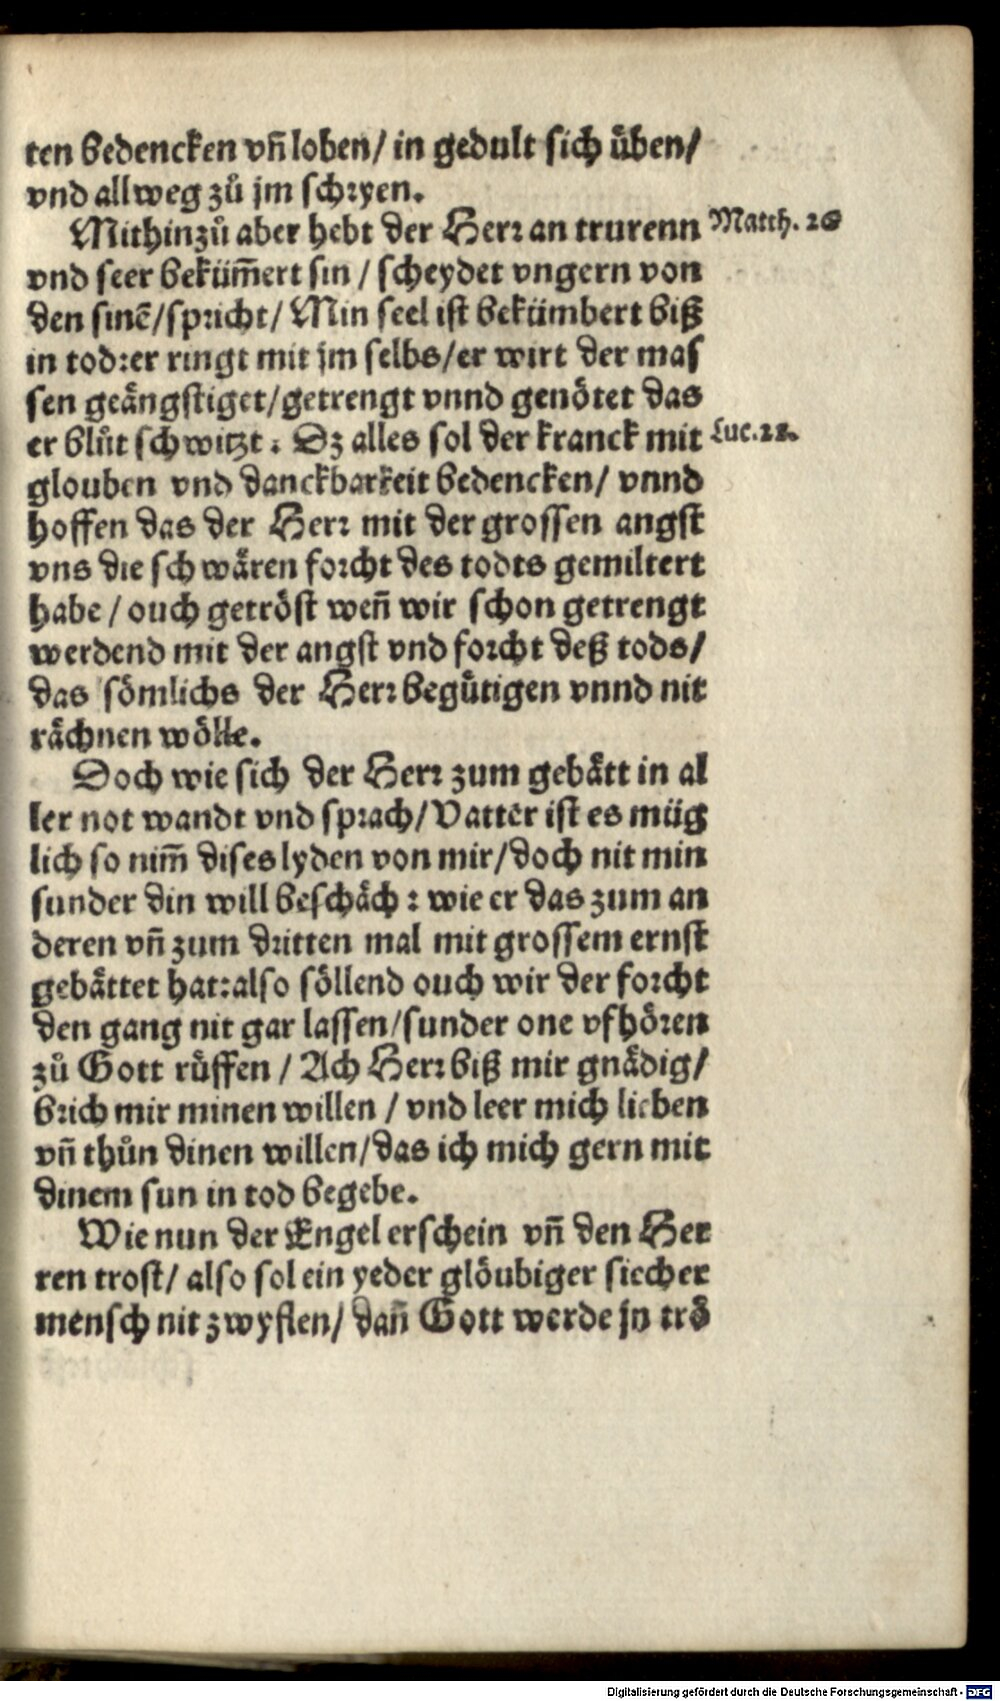 ten bedencken vñ loben/ in gedult sich üben/
vnd allweg zů jm schryen.
Mithinzů aber hebt der Herr an trurenn
Matth. 26
vnd seer beküm̃ert sin / scheydet vngern von
den sinẽ/spricht/ Min seel ist bekümbert biß
in tod:er ringt mit jm selbs/er wirt der mas
sen geängstiget/getrengt vnnd genötet das
er blůt schwitzt. Dz alles sol der kranck mit
Luc.22.
glouben vnd danckbarkeit bedencken/ vnnd
hoffen das der Herr mit der grossen angst
vns die schwären forcht des todts gemiltert
habe / ouch getröst weñ wir schon getrengt
werdend mit der angst vnd forcht deß tods/
das sömlichs der Herr begütigen vnnd nit
rächnen wölle.
Doch wie sich der Herr zum gebätt in al
ler not wandt vnd sprach/ Vatter ist es müg
lich so nim̃ dises lyden von mir/doch nit min
sunder din will beschäch: wie er das zum an
deren vñ zum dritten mal mit grossem ernst
gebättet hat:also söllend ouch wir der forcht
den gang nit gar lassen/sunder one vfhören
zů Gott rüffen / Ach Herr biß mir gnädig/
brich mir minen willen / vnd leer mich lieben
vñ thůn dinen willen/das ich mich gern mit
dinem sun in tod begebe.
Wie nun der Engel erschein vñ den Her
ren trost/ also sol ein yeder glöubiger siecher
mensch nit zwyflen/ dañ Gott werde jn trö
Digitalisierung gefördert durch die Deutsche Forschungsgemeinschaft - DFG